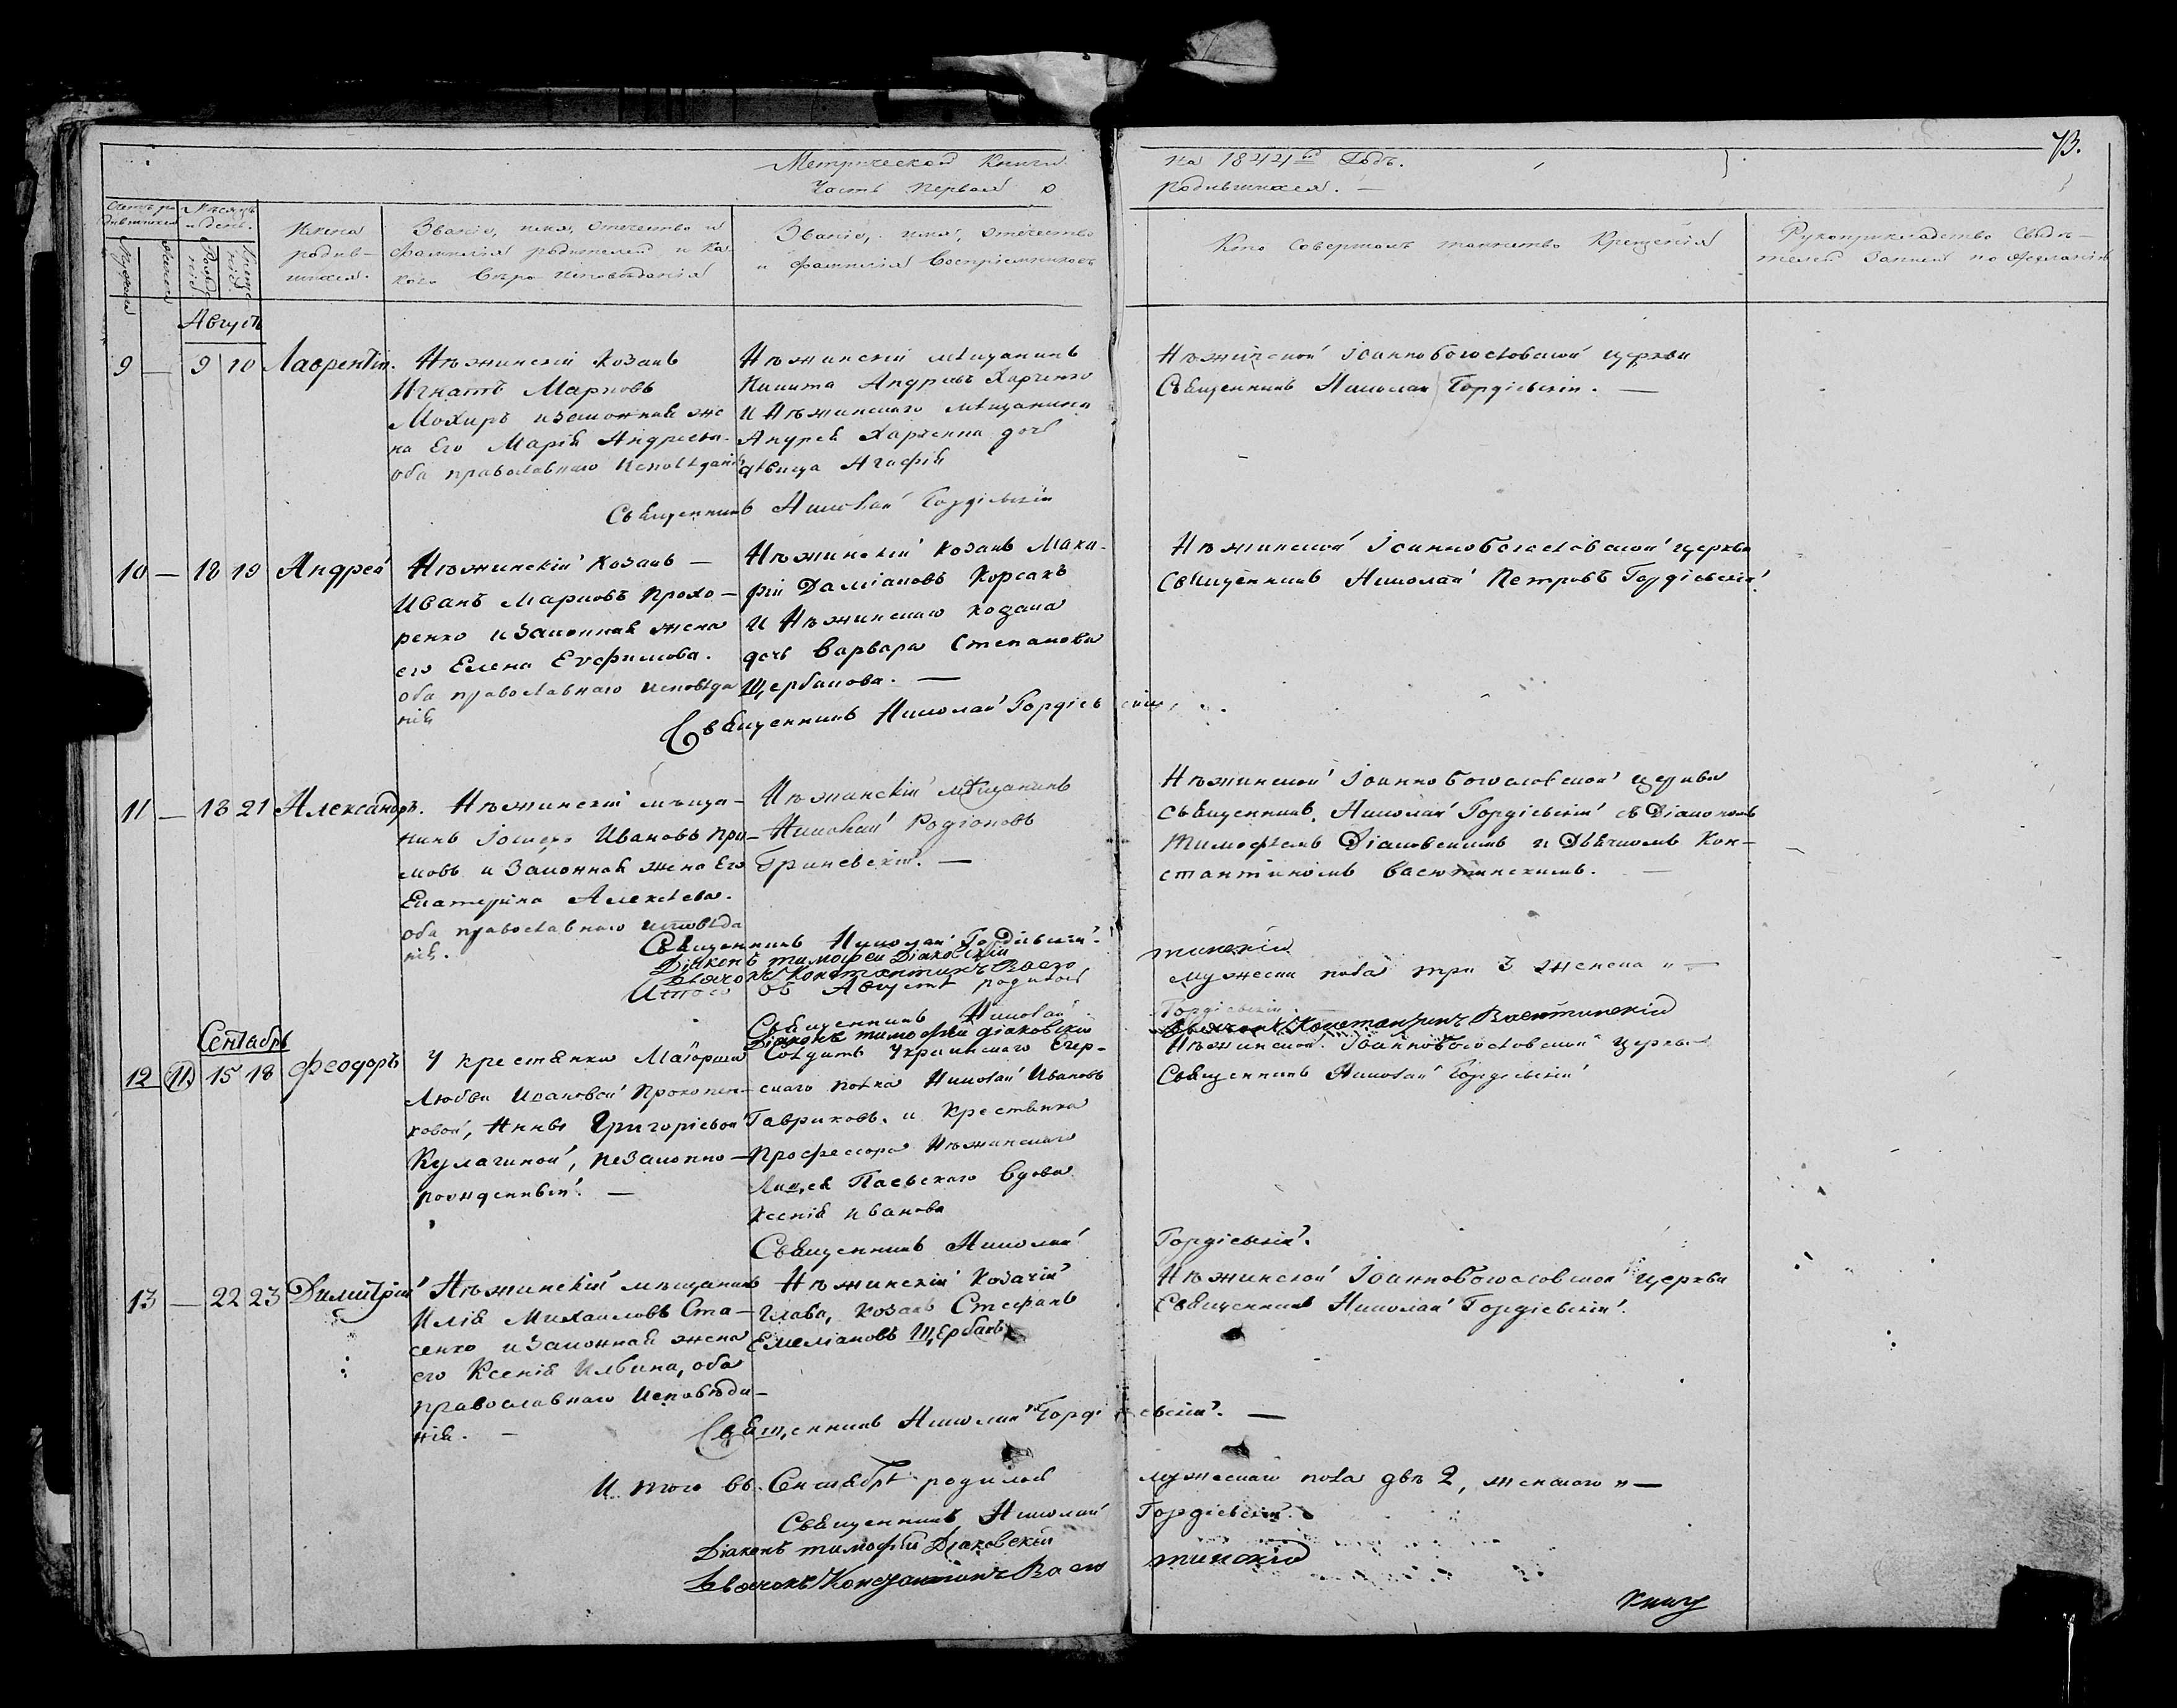 73.
Метрической Книги на 1844й Годъ.
Часть Первая о родившихся. —
Счетъ родившихся
Мѣсяцъ и день.
Имена родившихся.
Званіе, имя, отечество и фамилія родителей и какого вѣроисповѣданія
Званіе, имя, отечество и фамилія Воспріемниковъ
Кто Совершалъ таинство Крещенія
Рукоприкладство Свидѣтелей записи по желанію
Августъ
9 — 9 10 Лаврентій.
Нѣжинскій козакъ
Игнатъ Марковъ
Мохиръ и законная же
на Его Марія Андреева.
оба православнаго исповѣданія
Нѣжинскій мѣщанинъ
Никита Андреевъ Харченко
и Нѣжинскаго мѣщанина
Андрея Харченка дочь
дѣвица Агафія
Нѣжинской Іоанно Богословской церкви
Священникъ Николай Гордіевскій. —
Священникъ Николай Гордіевскій
10 — 18 19 Андрей
Нѣжинскій Козакъ —
Иванъ Марковъ Прохо-
ренко и законная жена
его Елена Евфимова.
оба православнаго исповѣда
нія
Нѣжинскій козакъ Мака-
рій Даміановъ Корсакъ
и Нѣжинскаго козака
дочь Варвара Степанова
Щербакова. —
Нѣжинской Іоанно Богословской церкви
Священникъ Николай Петровъ Гордіевскій.
Священникъ Николай Гордіевскій
11 — 18 21 Александръ.
Нѣжинскій мѣща-
нинъ Іосифъ Ивановъ При-
мовъ и Законная жена Его
Екатерина Алексѣева.
оба православнаго исповѣда
нія.
Нѣжинскій мѣщанинъ
Николай Родіоновъ
Гриневскій. —
Нѣжинской Іоанно Богословской церкви
Священникъ Николай Гордіевскій съ Діакономъ
Тимофеемъ Діаковскимъ и Дьячкомъ Кон-
стантиномъ Васютинскимъ. —
Священникъ Николай Гордіевскій.
Діаконъ Тимофей Діаковскій
Дьячокъ Константинъ Васютинскій
Итого въ Августѣ родилось мужеска пола три 3 женска „ —
Священникъ Николай Гордіевскій.
Діаконъ Тимофей Діаковскій
Дьячокъ Константинъ Васютинскій
Сентябрь
12 (11.) 15 18 Феодоръ
У крестянки Маіорши
Любви Ивановой Прокопен-
ковой, Анны Григоріевой
Кулагиной, незаконно —
рожденный. —
Солдатъ Украинскаго Егер-
скаго полка Николай Ивановъ
Гавриковъ. и крестянка
Профессора Нѣжинскаго
Лицея Паевскаго Вдова
Ксенія Иванова
Нѣжинской Іоанно Богословской церкви
Священникъ Николай Гордіевскій
Священникъ Николай Гордіевскій.
13 — 22 23 Димитрій
Нѣжинскій мѣщанинъ
Илія Михаиловъ Ста-
сенко и Законная жена
его Ксенія Ильина, оба
православнаго исповѣда-
нія. —
Нѣжинскій Козачій
Глава, козакъ Стефанъ
Емеліановъ Щербакъ
Нѣжинской Іоанно Богословской церкви
Священникъ Николай Гордіевскій.
Священникъ Николай Гордіевскій. —
Итого въ Сентябрѣ родилось мужескаго пола двѣ 2, женскаго „ —
Священникъ Николай Гордіевскій.
Діаконъ Тимофей Діаковскій
Дьячокъ Константинъ Васютинскій